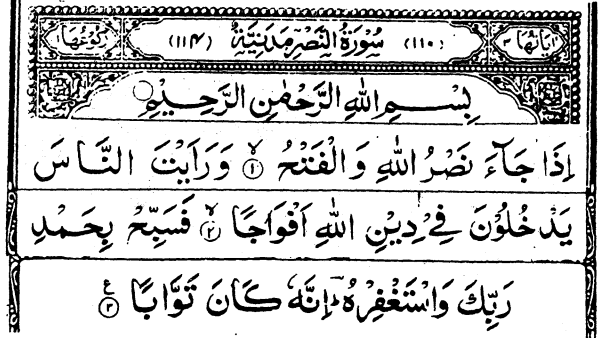 اٰيَاتُهَا ٣ (١١٠) سُوْرَةُ النَّصْرِ مَدَنِيَّةٌ (١١٤) رُكُوْعُهَا ١
بِسْمِ اللهِ الرَّحْمٰنِ الرَّحِيْمِ
اِذَا جَآءَ نَصْرُ اللهِ وَالْفَتْحُ ۙ﴿١﴾ وَرَاَيْتَ النَّاسَ
يَدْخُلُوْنَ فِيْ دِيْنِ اللهِ اَفْوَاجًا ۙ﴿٢﴾ فَسَبِّحْ بِحَمْدِ
رَبِّكَ وَاسْتَغْفِرْهُ ؔ اِنَّهٗ كَانَ تَوَّابًا ﴿٣﴾ ع